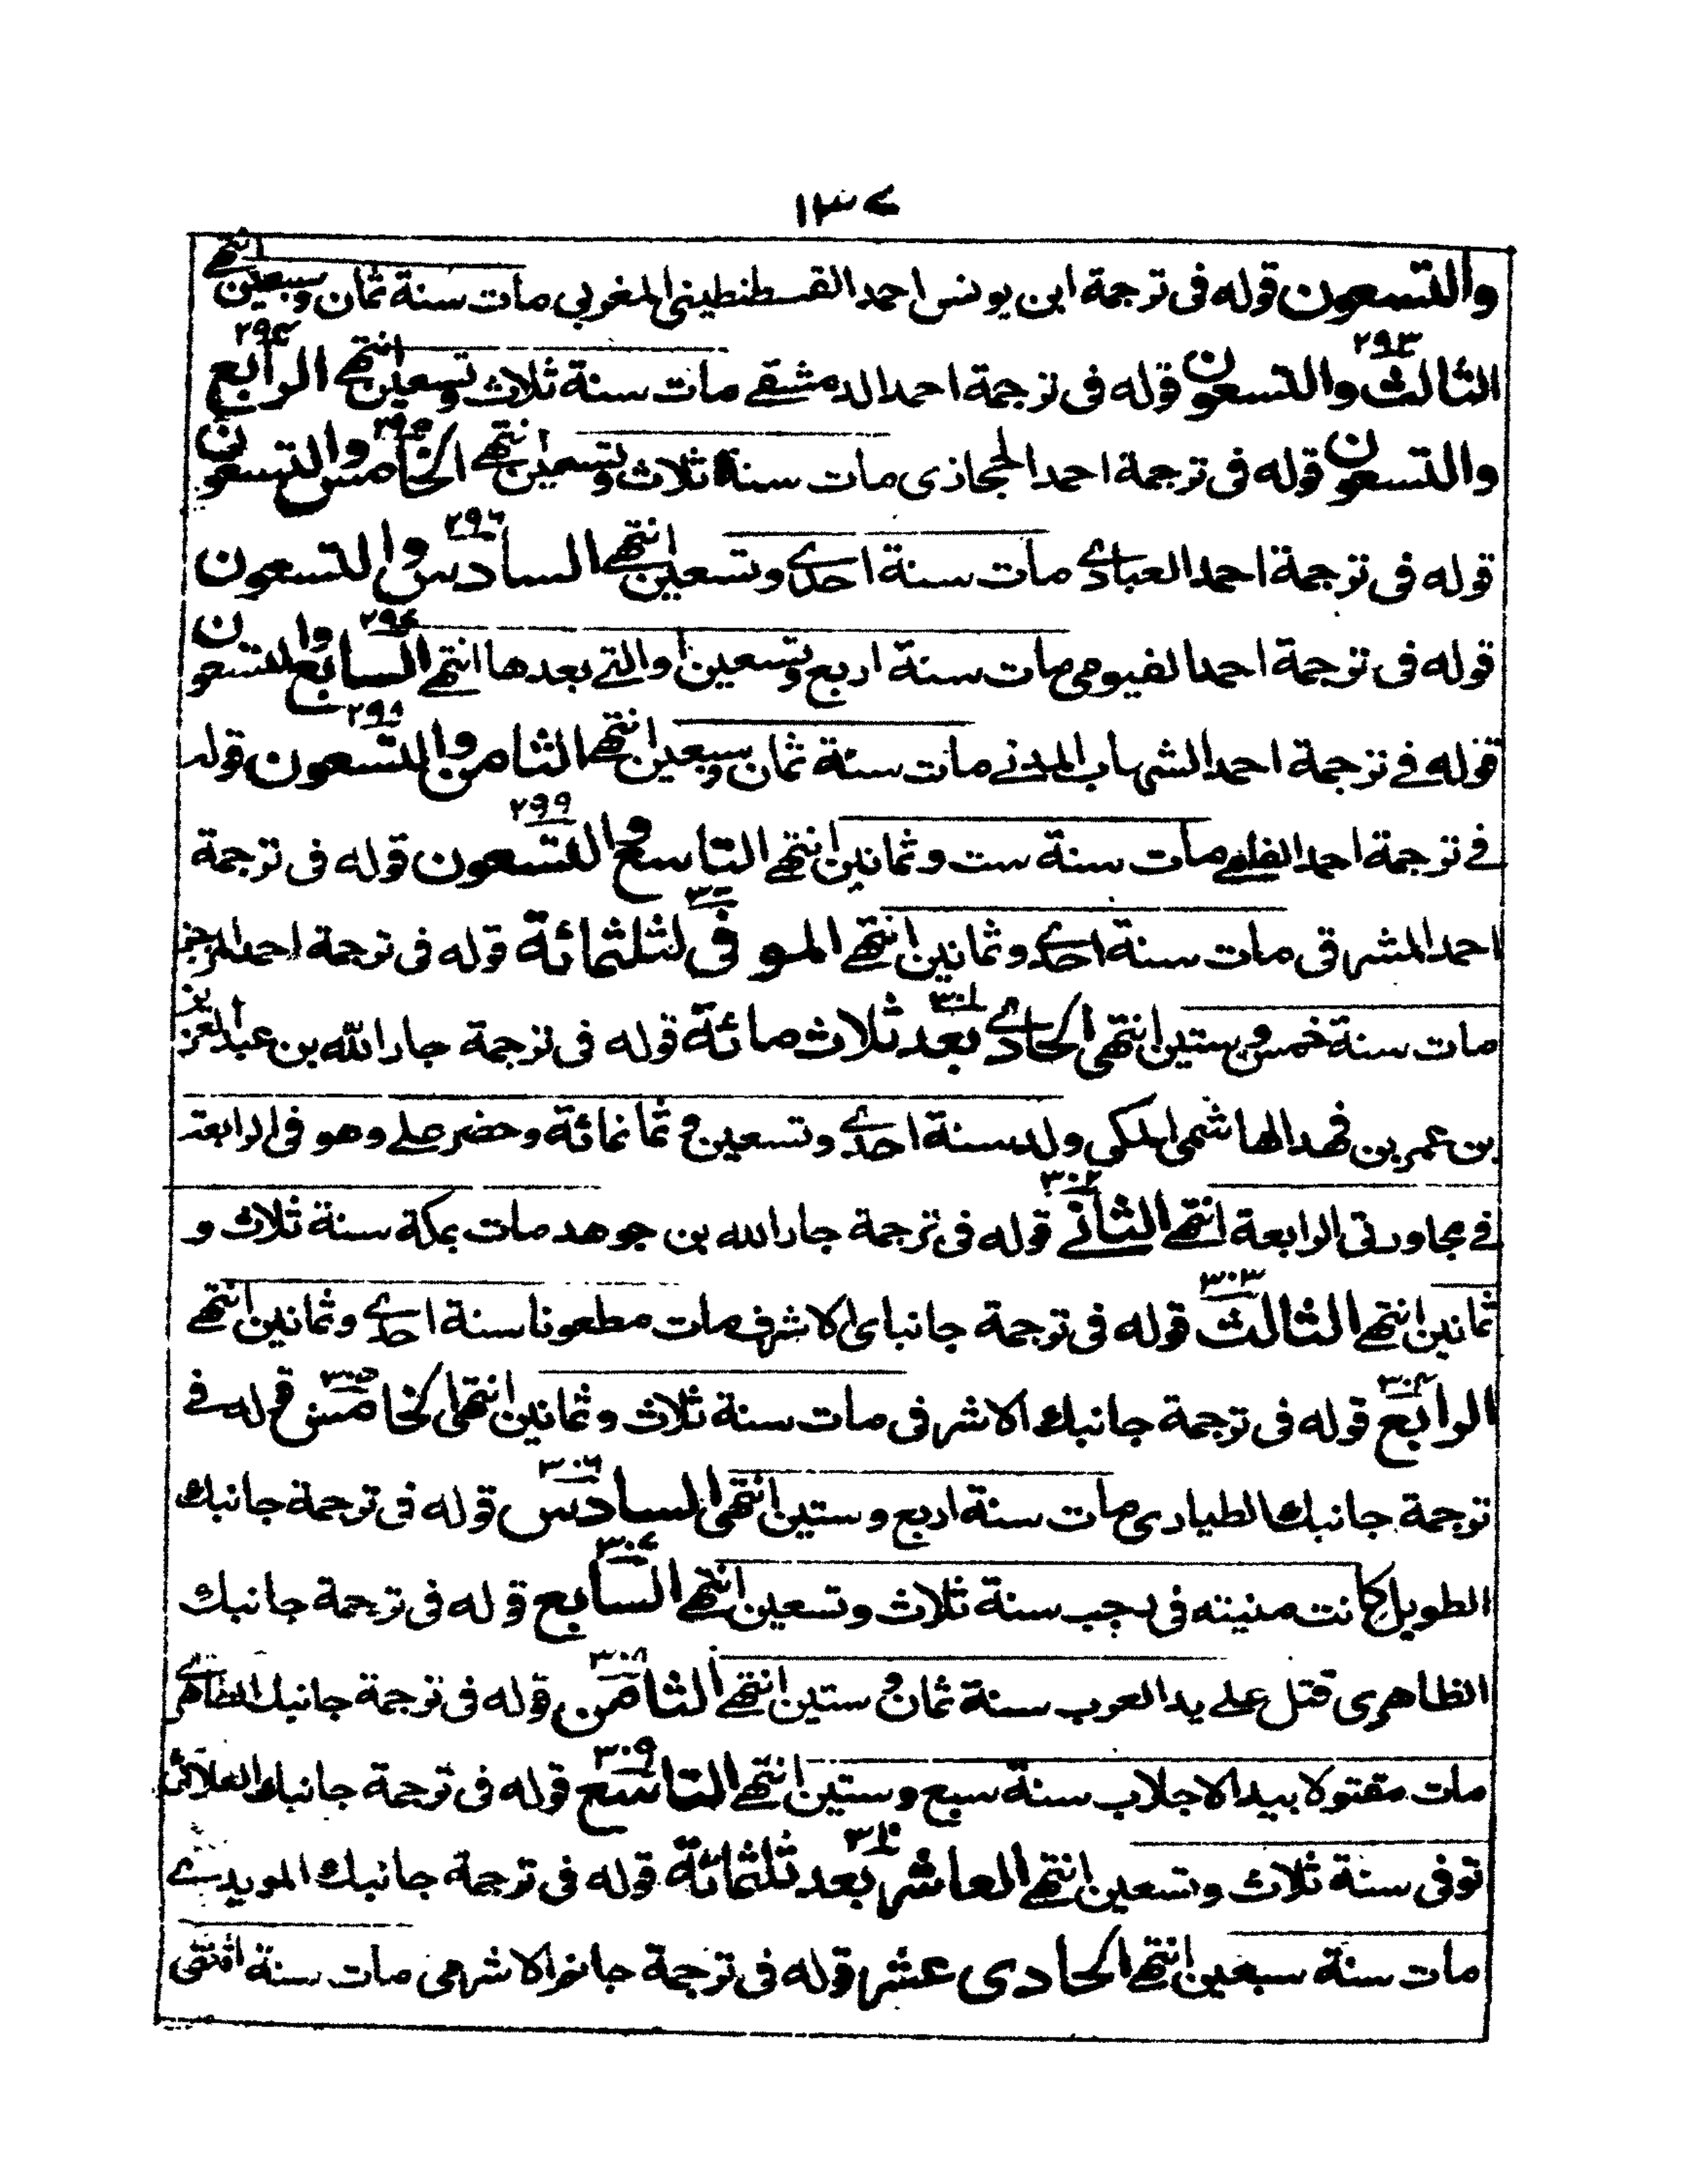 ١٣٧
والتسعون قوله فى ترجمة ابن يونس احمد القسطنطينى المغربي مات سنة ثمان وسبعين انتهے
٢٩٣ ٢٩٤
الثالث والتسعون قوله فى ترجمة احمد الدمشقے مات سنة ثلاث وتسعين انتهے الرابع
٢٩٥
والتسعون قوله فى ترجمة احمد الحجازى مات سنة ثلاث وتسعين انتهے الخامس والتسعون
٢٩٦
قوله فى ترجمة احمد العبادے مات سنة احدے وتسعين انتهے السادس والتسعون
٢٩٧
قوله فى ترجمة احمد الفيومى مات سنة اربع وتسعين او التے بعدها انتهے السابع والتسعون
٢٩٨
قوله فے ترجمة احمد الشهاب المدنے مات سنة ثمان وسبعين انتهے الثامن والتسعون قوله
٢٩٩
فے ترجمة احمد مات سنة ست وثمانين انتهے التاسع والتسعون قوله فى ترجمة
٣٠٠
احمد المشرقى مات سنة احدے وثمانين انتهے الموفى لثلثمائة قوله فى ترجمة احمد
٣٠١
مات سنة خمس وستين انتهى الحادے بعد ثلاث مائة قوله فى ترجمة جار الله بن عبد العزيز
بن عمر بن فهد الهاشمى المكى ولد سنة احدے وتسعين وثمانمائة وحضر علے وهو فى الرابعة
٣٠٢
فے مجاورتى الرابعة انتهے الثانے قوله فى ترجمة جار الله بن جوهد مات بمكة سنة ثلاث و
٣٠٣
ثمانين انتهے الثالث قوله فى ترجمة جانباى الاشرف مات مطعونا سنة احدے وثمانين انتهے
٣٠٤ ٣٠٥
الرابع قوله فى ترجمة جانبك الاشرفى مات سنة ثلاث وثمانين انتهى الخامس قوله فے
٣٠٦
ترجمة جانبك الطيارى مات سنة اربع وستين انتهى السادس قوله فى ترجمة جانبك
٣٠٧
الطويل كانت منيته فى رجب سنة ثلاث وتسعين انتهے السابع قوله فى ترجمة جانبك
٣٠٨
الظاهرى قتل علے يد العرب سنة ثمان وستين انتهے الثامن قوله فى ترجمة جانبك الظاهرے
٣٠٩
مات مقتولا بيد الاجلاب سنة سبع وستين انتهے التاسع قوله فى ترجمة جانبك العلائى
٣١٠
توفى سنة ثلاث وتسعين انتهے العاشر بعد ثلثمائة قوله فى ترجمة جانبك المويدے
مات سنة سبعين انتهے الحادى عشر قوله فى ترجمة مات سنة